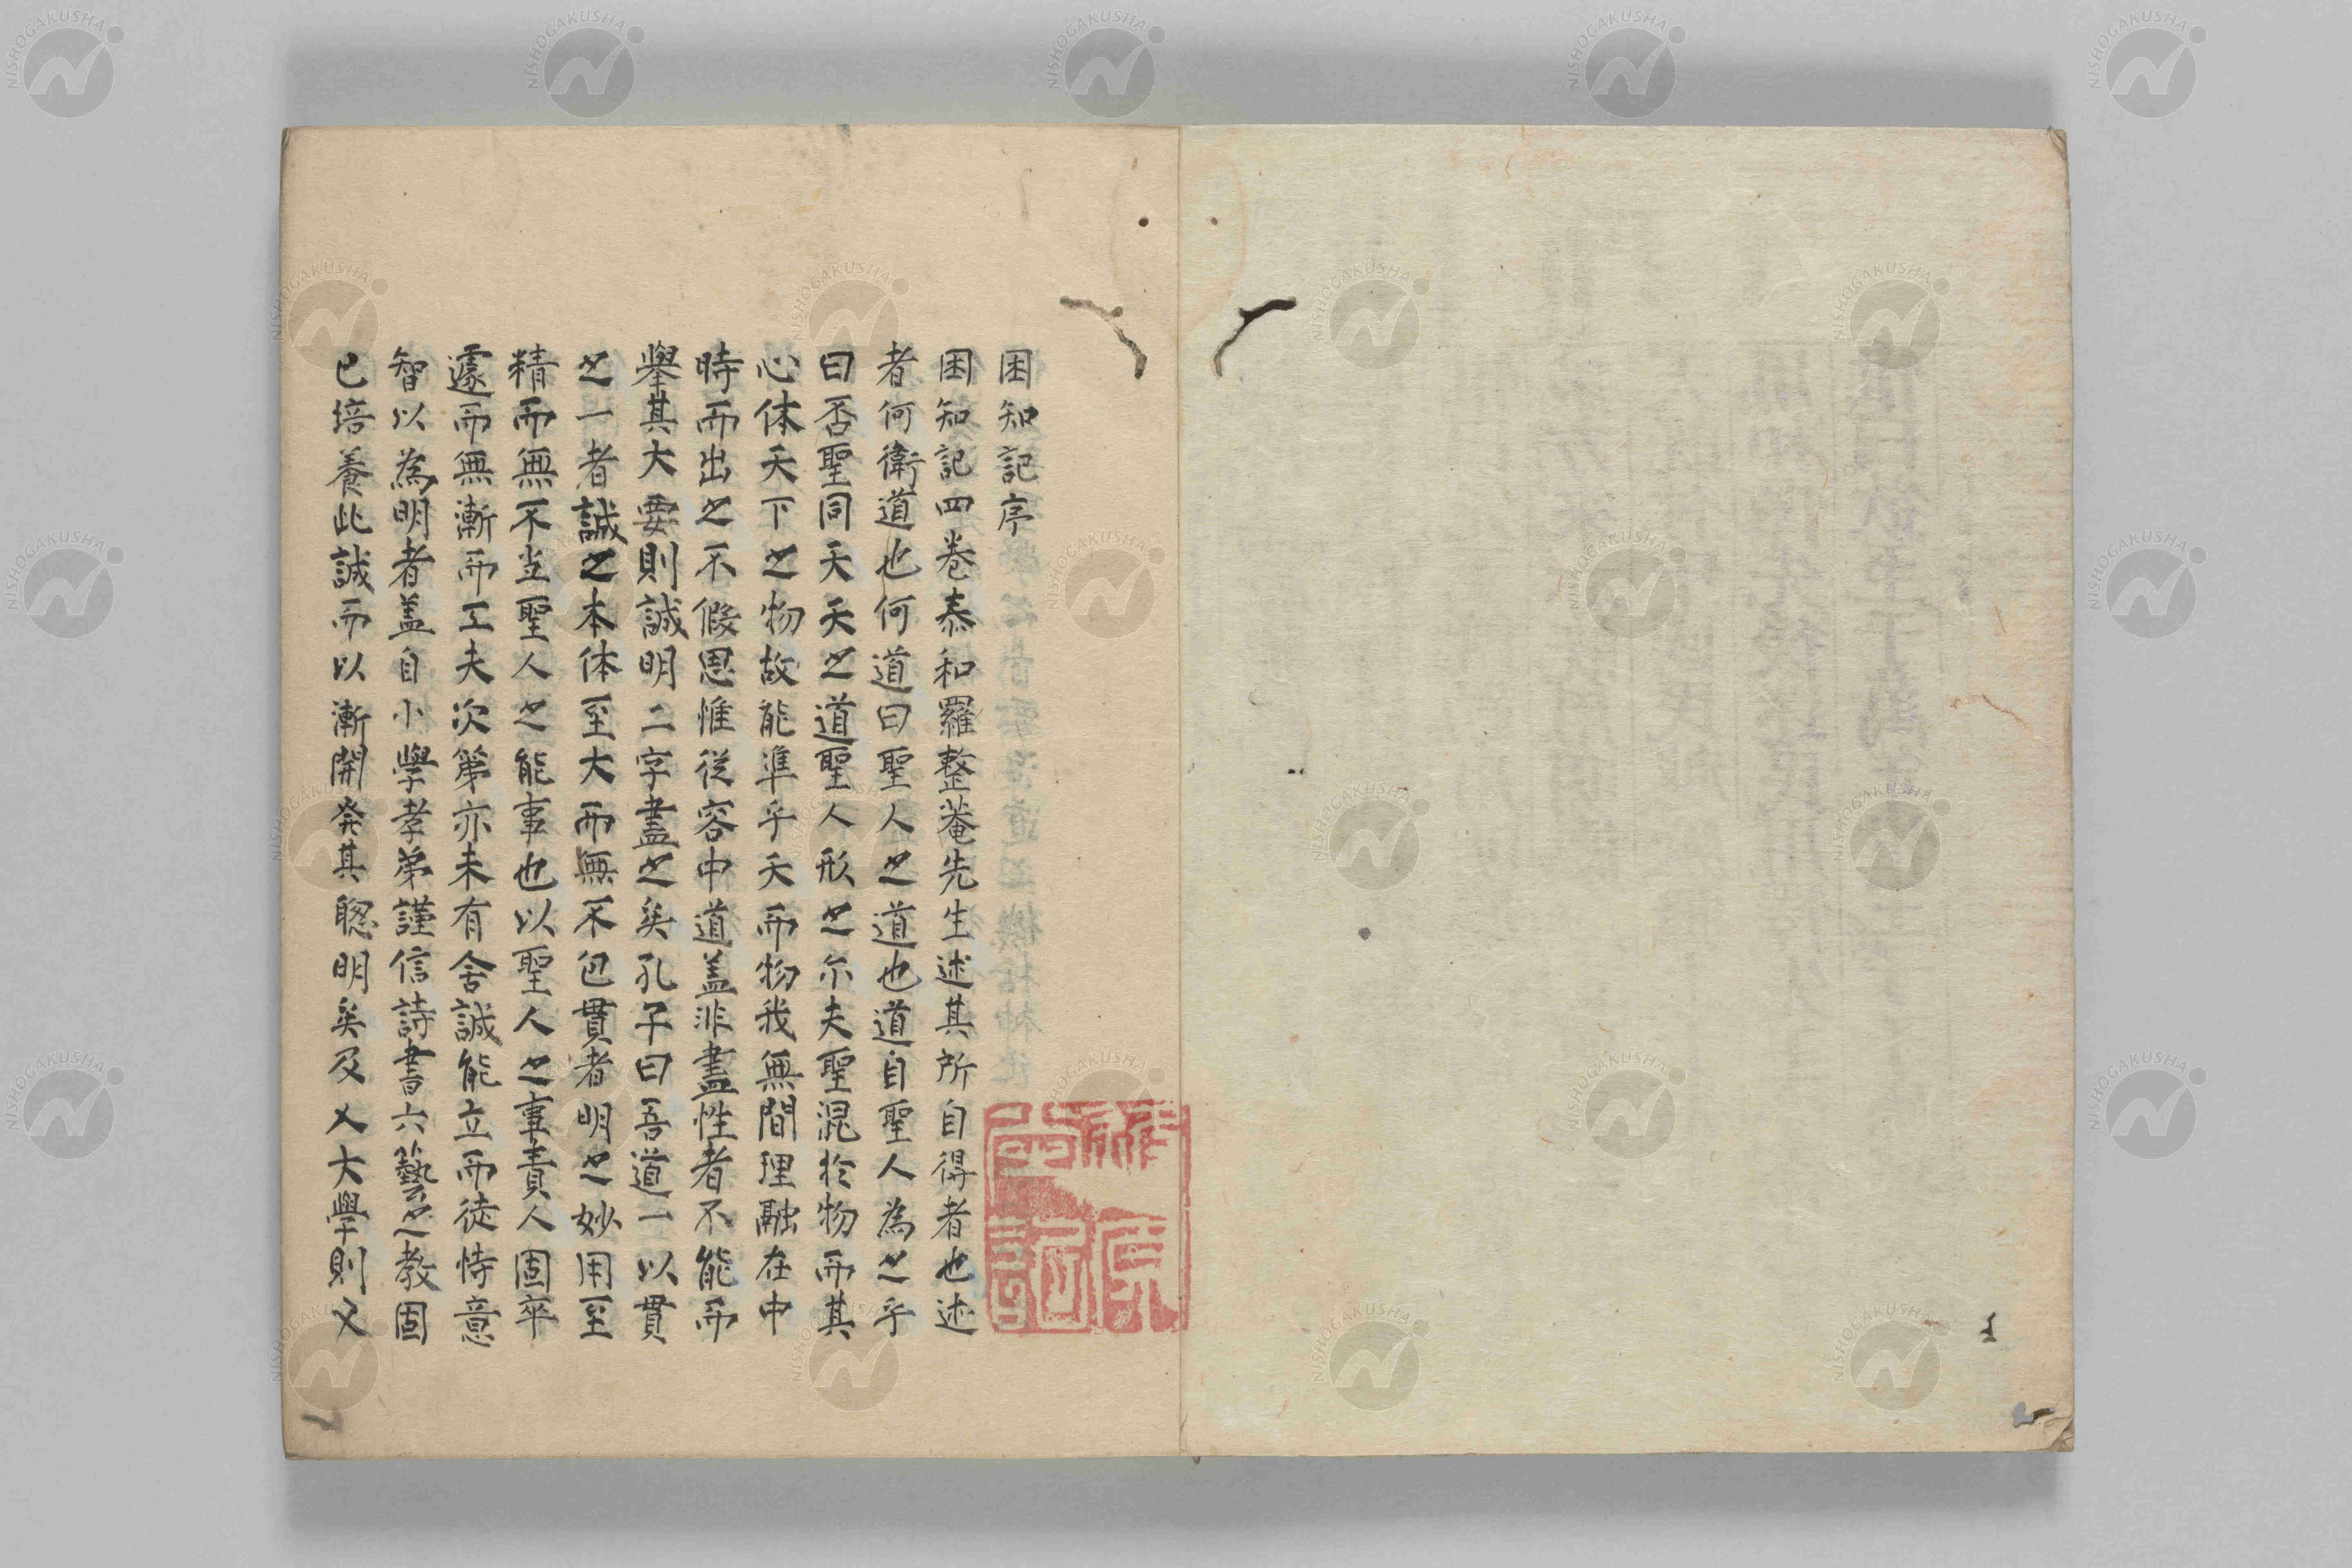 困知記序
困知記四巻泰和羅整菴先生述其所自得者也述
者何衛道也何道曰聖人之道也道自聖人為之乎
曰否聖同天天之道聖人形之尓夫聖混於物而其
心体天下之物故能準乎天而物我無間理融在中
時而出之不假思惟從容中道盖非盡性者不能而
舉其大要則誠明二字盡之矣孔子曰吾道一以貫
之一者誠之本体至大而無不包貫者明之妙用至
精而無不当聖人之能事也以聖人之事責人固卒
遽而無漸而工夫次第亦未有舍誠能立而徒恃意
智以為明者盖自小學孝弟謹信詩書六藝之教固
已培養此誠而以漸開発其聡明矣及入大學則又
NISHOGAKUSHA